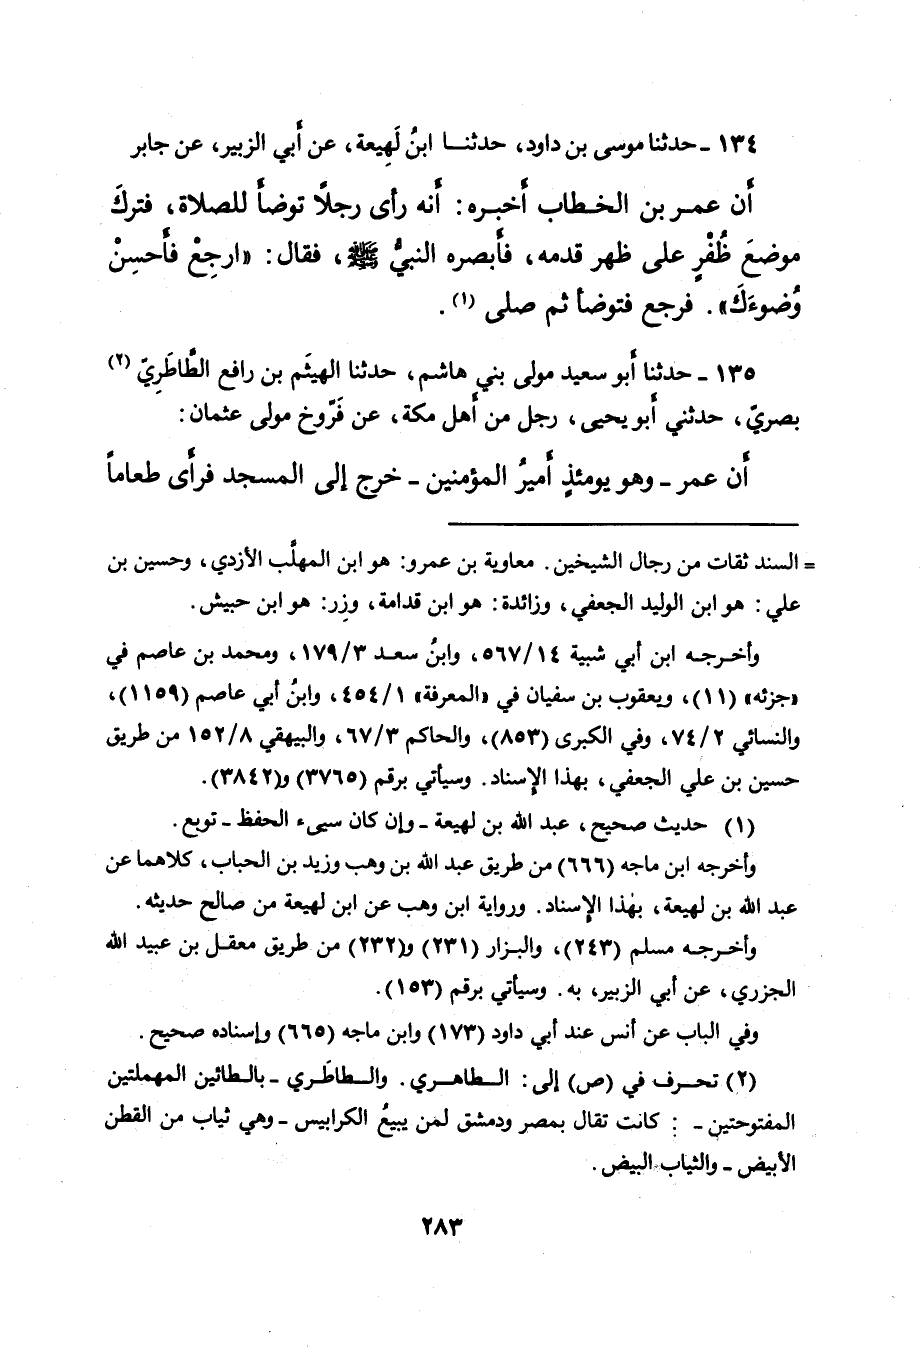 ١٣٤ ـ حدثنا موسى بن داود، حدثنا ابنُ لَهِيعة، عن أبي الزبير، عن جابر
أن عمر بن الخطاب أخبره: أنه رأى رجلًا توضأ للصلاة، فتركَ
موضعَ ظُفْرٍ على ظهر قدمه، فأبصره النبيُّ ﷺ، فقال: «ارجِعْ فأَحسِنْ
وُضوءَكَ». فرجع فتوضأ ثم صلى (١).
١٣٥ ـ حدثنا أبو سعيد مولى بني هاشم، حدثنا الهيثَم بن رافع الطَّاطَرِيّ (٢)
بصريّ، حدثني أبو يحيى، رجل من أهل مكة، عن فَرّوخ مولى عثمان:
أن عمر ـ وهو يومئذٍ أميرُ المؤمنين ـ خرج إلى المسجد فرأى طعاماً
= السند ثقات من رجال الشيخين. معاوية بن عمرو: هو ابن المهلَّب الأزدي، وحسين بن
علي: هو ابن الوليد الجعفي، وزائدة: هو ابن قدامة، وزِر: هو ابن حبيش.
وأخرجه ابن أبي شيبة ١٤/٥٦٧، وابنُ سعد ٣/١٧٩، ومحمد بن عاصم في
«جزئه» (١١)، ويعقوب بن سفيان في «المعرفة» ١/٤٥٤، وابنُ أبي عاصم (١١٥٩)،
والنسائي ٢/٧٤، وفي الكبرى (٨٥٣)، والحاكم ٣/٦٧، والبيهقي ٨/١٥٢ من طريق
حسين بن علي الجعفي، بهذا الإسناد. وسيأتي برقم (٣٧٦٥) و(٣٨٤٢).
(١) حديث صحيح، عبد الله بن لهيعة ـ وإن كان سيىء الحفظ ـ توبع.
وأخرجه ابن ماجه (٦٦٦) من طريق عبد الله بن وهب وزيد بن الحباب، كلاهما عن
عبد الله بن لهيعة، بهٰذا الإسناد. ورواية ابن وهب عن ابن لهيعة من صالح حديثه.
وأخرجه مسلم (٢٤٣)، والبزار (٢٣١) و(٢٣٢) من طريق معقل بن عبيد الله
الجزري، عن أبي الزبير، به. وسيأتي برقم (١٥٣).
وفي الباب عن أنس عند أبي داود (١٧٣) وابن ماجه (٦٦٥) وإسناده صحيح.
(٢) تحرف في (ص) إلى: الطاهري. والطاطَري ـ بالطائين المهملتين
المفتوحتين ـ : كانت تقال بمصر ودمشق لمن يبيعُ الكرابيس ـ وهي ثياب من القطن
الأبيض ـ والثياب البيض.
٢٨٣